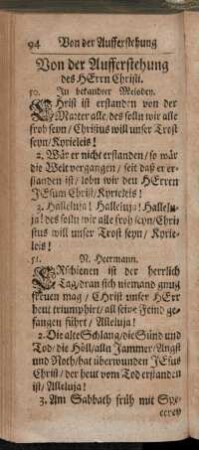 94 Von der Aufferstehung
Von der Aufferstehung
des HErrn Christi.
50. In bekandter Melodey.
CHrist ist erstanden von der
Marter alle, des solln wir alle
froh seyn/ Christus will unser Trost
seyn/ Kyrieleis!
2. Wär er nicht erstanden/ so wär
die Welt vergangen/ seit daß er er-
standen ist/ lobn wir den HErren
JEsum Christ/ Kyrieleis!
3. Halleluja! Halleluja! Hallelu-
ja! des solln wir alle froh seyn/ Chri-
stus will unser Trost seyn/ Kyrie-
leis!
51. N. Heermann.
ERschienen ist der herrlich
Tag/ dran sich niemand gnug
freuen mag/ Christ unser HErr
heut triumphirt/ all seine Feind ge-
fangen führt/ Alleluja!
2. Die alte Schlang/ die Sünd und
Tod/ die Höll/ alln Jammer/ Angst
und Noth/ hat überwunden JEsus
Christ/ der heut vom Tod erstanden
ist/ Alleluja!
3. Am Sabbath früh mit Spe-
cerey